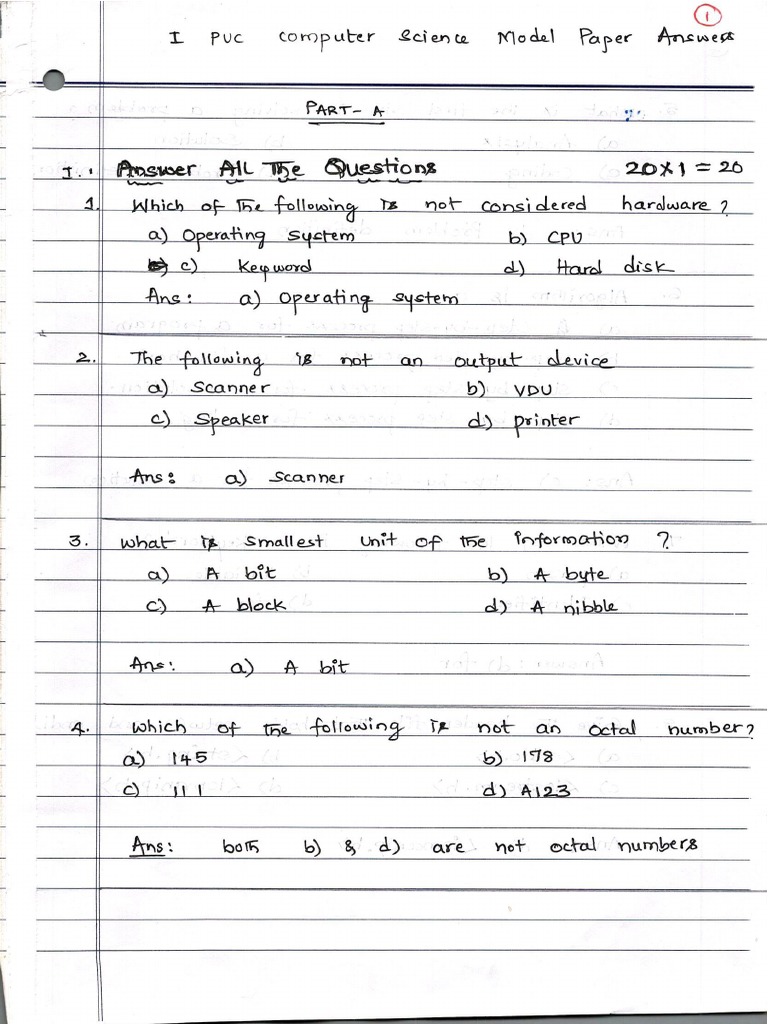 1
I PUC Computer Science Model Paper Answers
PART-A
I. Answer All The Questions 20x1=20
1. Which of the following is not considered hardware?
a) Operating System b) CPU
c) Keyword d) Hard disk
Ans: a) Operating system
2. The following is not an output device
a) Scanner b) VDU
c) Speaker d) printer
Ans: a) Scanner
3. What is smallest unit of the information ?
a) A bit b) A byte
c) A block d) A nibble
Ans: a) A bit
4. Which of the following is not an octal number?
a) 145 b) 178
c) 111 d) A123
Ans: both b) & d) are not octal numbers